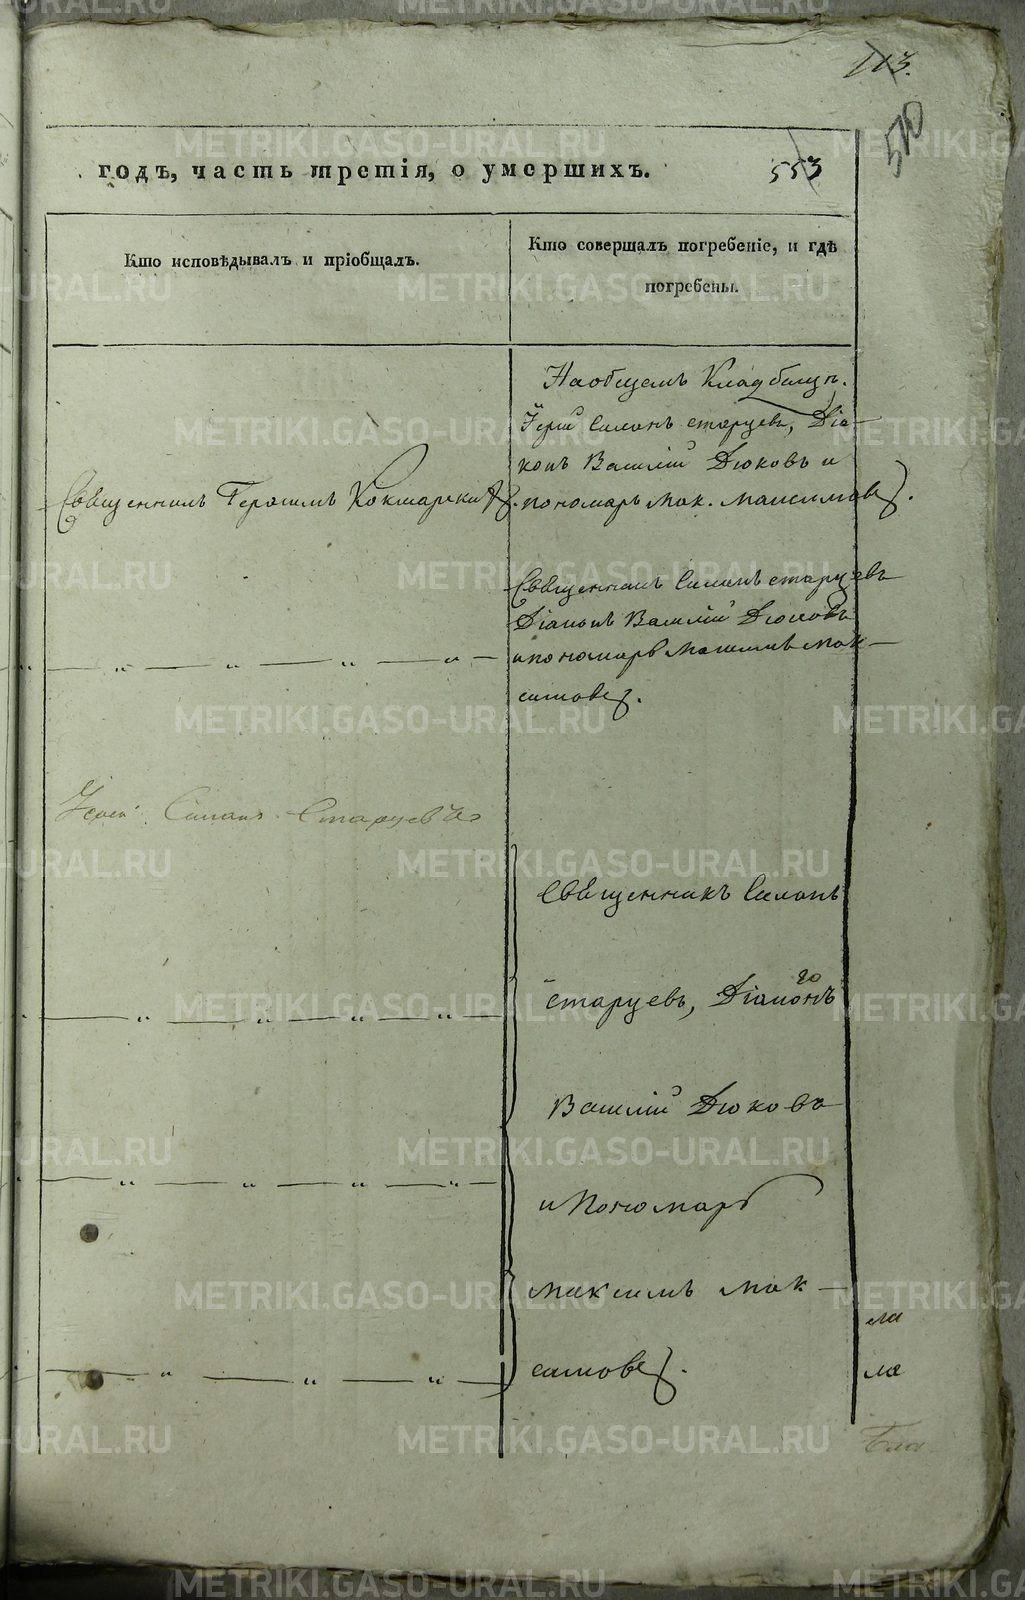 113.
510
годъ, часть третія, о умершихъ.
553
Кто исповѣдывалъ и пріобщалъ.
Кто совершалъ погребеніе, и гдѣ
погребены.
На общемъ Кладбищѣ.
Іерей Симонъ Старцевъ, Діа-
конъ Василій Дюковъ и
Священникъ Герасимъ Кокшарскій.
пономарь Мак. Максимовъ.
Священникъ Симонъ Старцевъ
Діаконъ Василій Дюковъ
и пономарь Максимъ Мак-
симовъ.
Іерей Симонъ Старцевъ
Священникъ Симонъ
Старцевъ, Діаконъ
Василій Дюковъ
и Пономарь
Максимъ Мак-
симовъ.
ла
Бла
METRIKI.GASO-URAL.RU